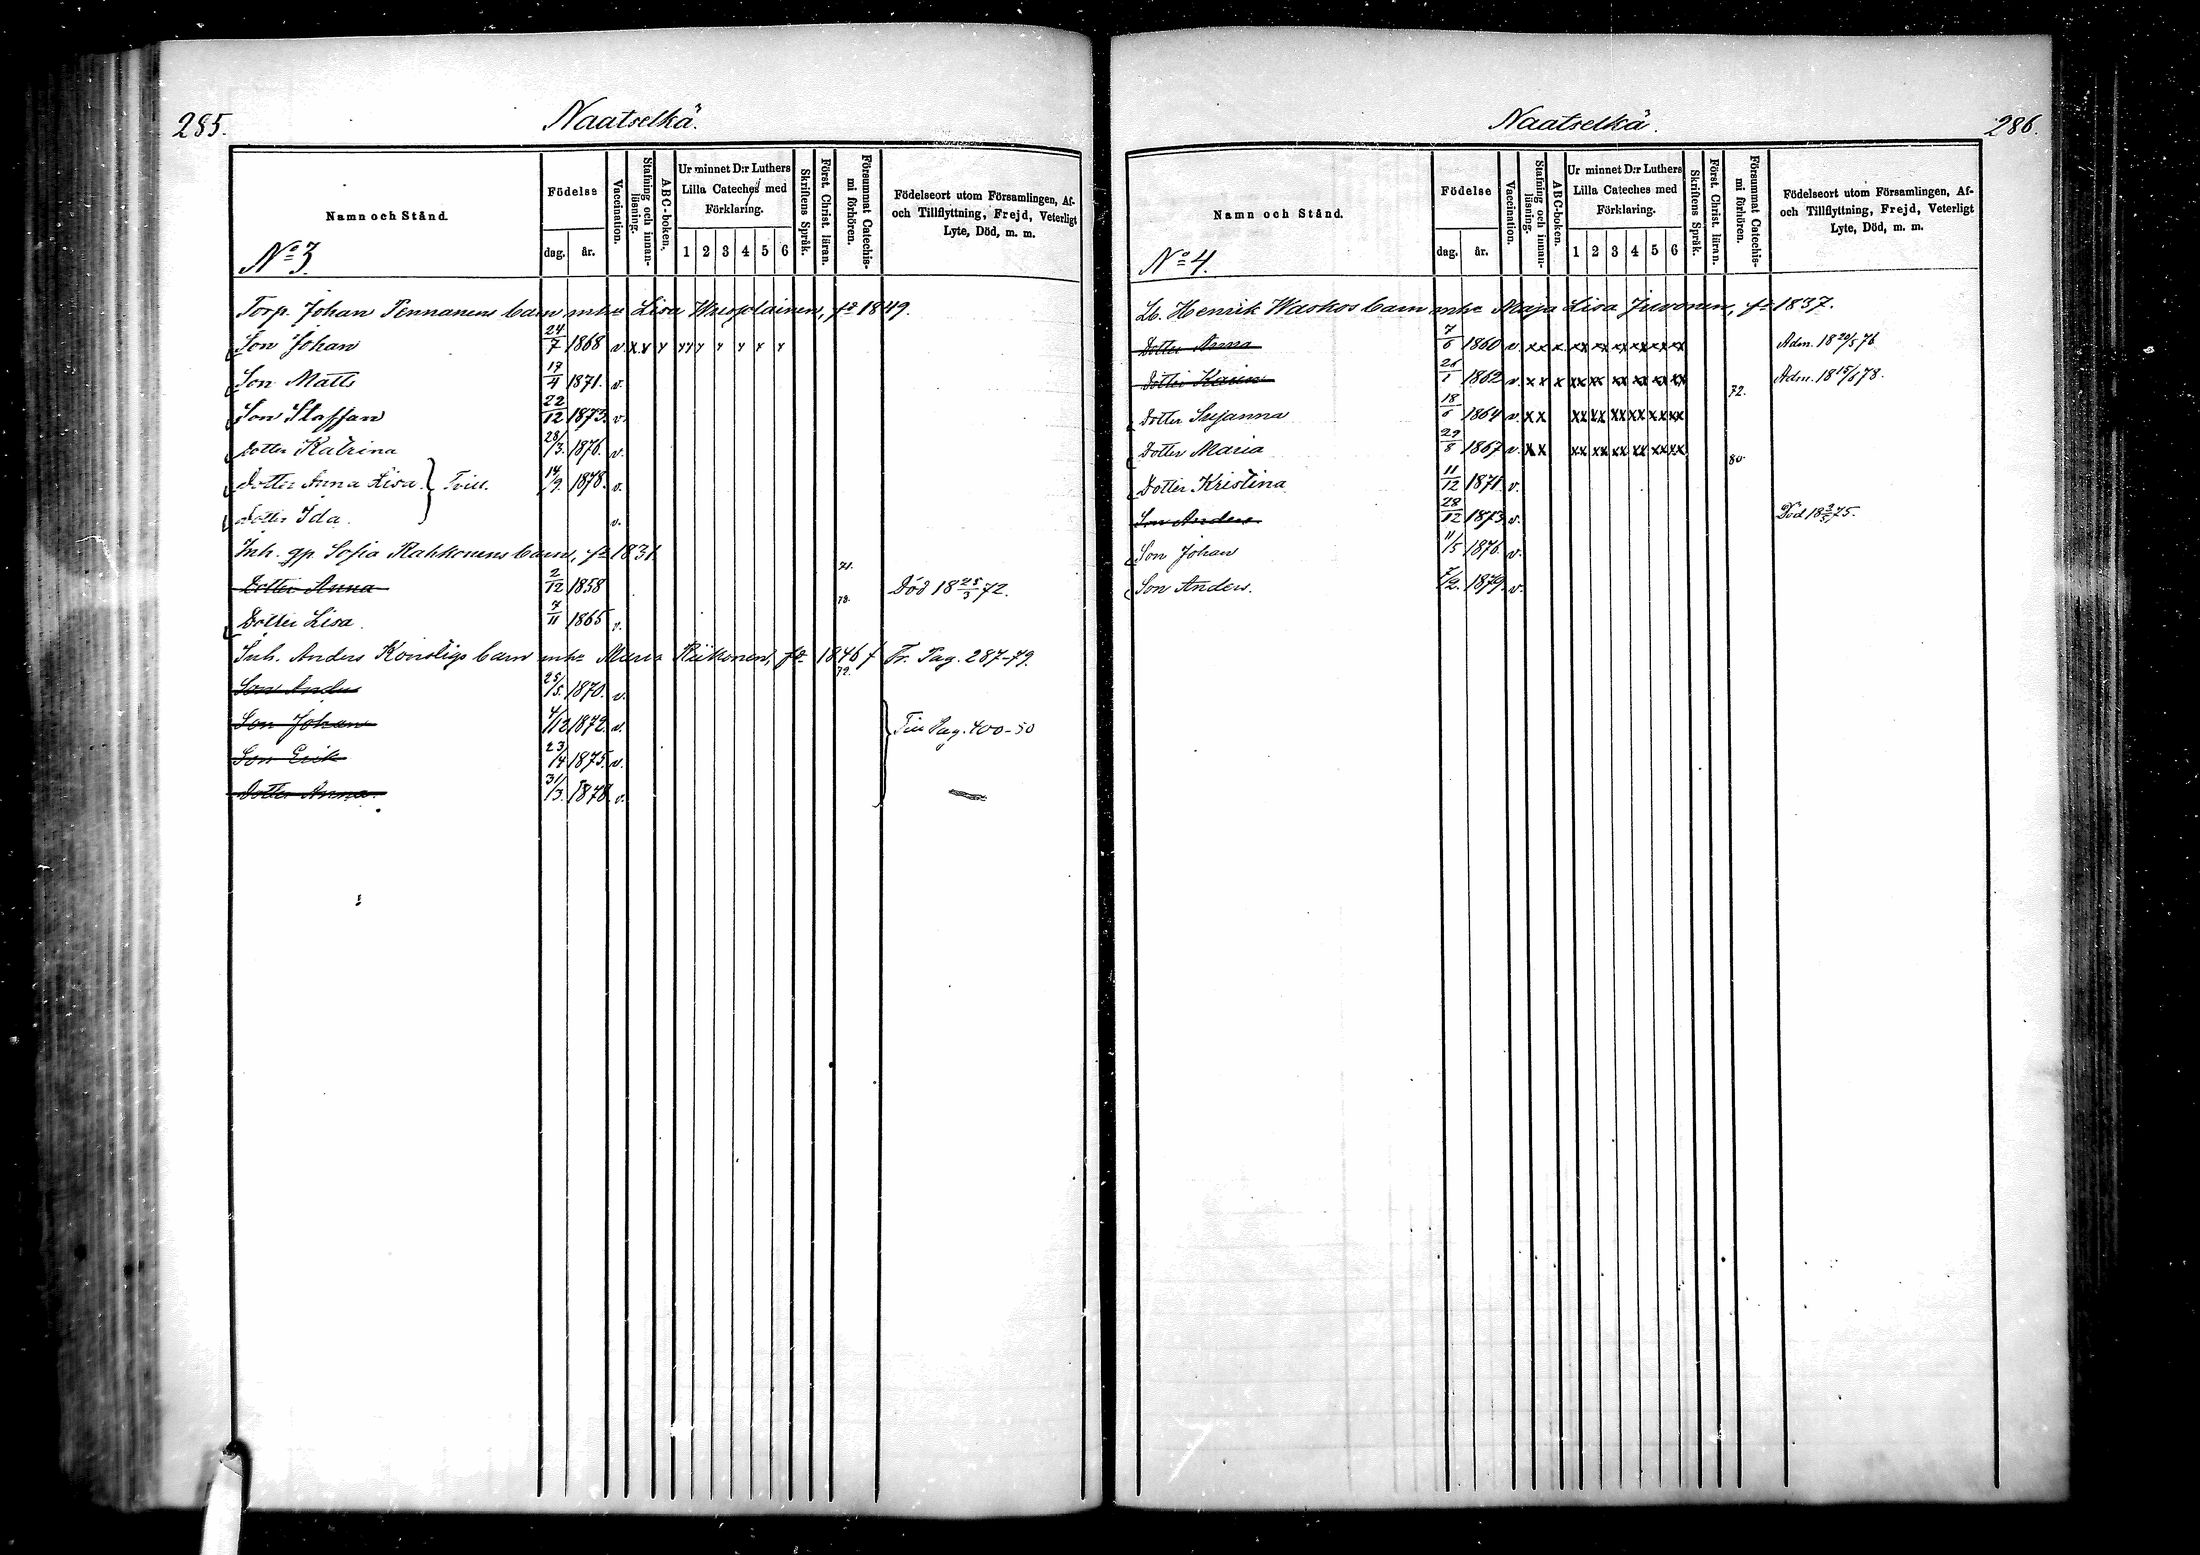 285.
Naatselkä.
Namn och Stånd.
Födelse
dag.
år.
Vaccination.
Stafning och innan-läsning.
ABC-boken.
Ur minnet D:r Luthers
Lilla Cateches med
Förklaring.
1 2 3 4 5 6
Skriftens Språk.
Först. Christ. läran.
Försummat Catechis-mi förhören.
Födelseort utom Församlingen, Af-
och Tillflyttning, Frejd, Veterligt
Lyte, Död, m. m.
No 3.
Torp. Johan Pennanens barn mhu Lisa, fd 1849.
Son Johan 24/7 1868 v. x x y yy y y y y y
Son Matts 17/4 1871. v.
Son Staffan 22/12 1873. v.
Dotter Katrina 28/3. 1876. v.
Dotter Anna Lisa } Tvill. 14/9. 1878. v.
Dotter Ida v.
Inh. gp. Sofia Rahkonens barn, fd 1831. 71.
Dotter Anna 2/12 1858 78. Död 18 25/3 72.
Dotter Lisa 7/11 1865 v.
Inh. Anders barn mhu Maria Riikonen, fd 1846 f Fr. Pag. 287-79.
72.
Son Anders 25/5. 1870. v.
Son Johan 4/12 1872. v. Till Pag. 400-50
Son Erik 23/14 1875. v.
Dotter Anna 31/3. 1878. v.
Naatselkä.
286.
Namn och Stånd.
Födelse
dag.
år.
Vaccination.
Stafning och innan-läsning.
ABC-boken.
Ur minnet D:r Luthers
Lilla Cateches med
Förklaring.
1 2 3 4 5 6
Skriftens Språk.
Först. Christ. läran.
Försummat Catechis-mi förhören.
Födelseort utom Församlingen, Af-
och Tillflyttning, Frejd, Veterligt
Lyte, Död, m. m.
No 4.
Lb. Henrik Waskos barn mhu Maja Lisa Juvonen, fd 1837.
Dotter Anna 7/6 1860 v. xx x xx xx xx xx xx xx Adm. 18 20/5 76
Dotter Karin 1862 v. xx x xx xx xx xx xx xx 72. Adm. 18 15/6 78.
Dotter Susanna 18/6 1864 v. xx xx xx xx xx xx xx
Dotter Maria 29/8 1867 v. xx xx xx xx xx xx xx 80.
Dotter Kristina 11/12 1871. v.
Son Anders 28/12 1873 v. Död 18 2/5 75.
Son Johan 11/5 1876. v.
Son Anders. 7/2. 1879. v.